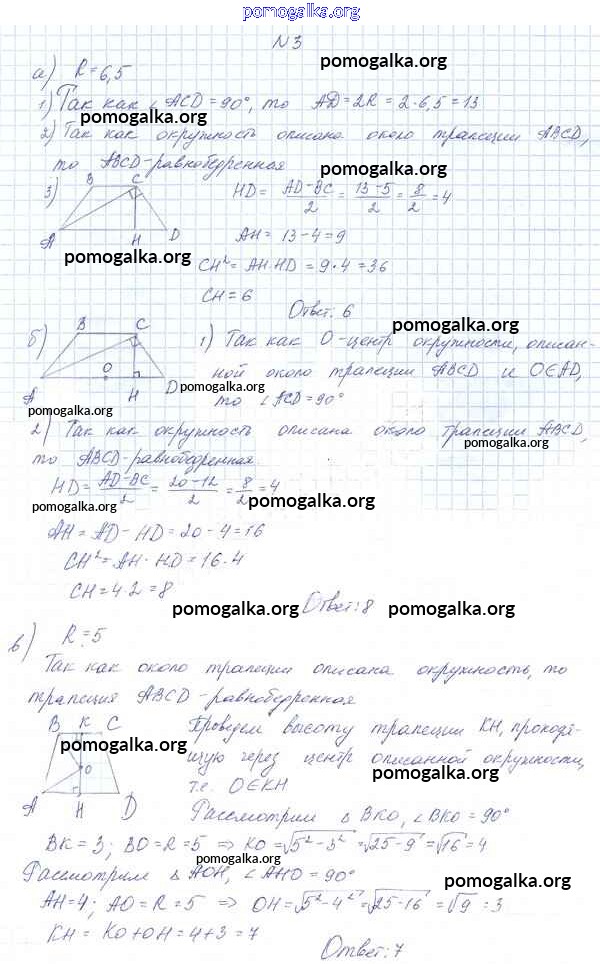 pomogalka.org
N 3
pomogalka.org
а) R = 6,5
1) Так как ∠ACD = 90°, то AD = 2R = 2·6,5 = 13
pomogalka.org
2) Так как окружность описана около трапеции ABCD,
то ABCD-равнобедренная
pomogalka.org
3) B C
HD = AD-BC/2 = 13-5/2 = 8/2 = 4
A H D
AH = 13-4 = 9
pomogalka.org
CH² = AH·HD = 9·4 = 36
CH = 6
Ответ: 6
pomogalka.org
б) B C
1) Так как O-центр окружности, описан-
ной около трапеции ABCD и O∈AD,
A O H D
pomogalka.org
то ∠ACD = 90°
pomogalka.org
2) Так как окружность описана около трапеции ABCD,
pomogalka.org
то ABCD-равнобедренная
HD = AD-BC/2 = 20-12/2 = 8/2 = 4
pomogalka.org
pomogalka.org
AH = AD - HD = 20 - 4 = 16
CH² = AH·HD = 16·4
CH = 4·2 = 8
Ответ: 8
pomogalka.org
pomogalka.org
в) R = 5
Так как около трапеции описана окружность, то
трапеция ABCD - равнобедренная
B K C
Проведем высоту трапеции KH, проходя-
pomogalka.org
щую через центр описанной окружности,
O
pomogalka.org
т.е. O∈KH
A H D
Рассмотрим Δ BKO, ∠BKO = 90°
BK = 3; BO = R = 5 ⇒ KO = √5²-3² = √25-9 = √16 = 4
pomogalka.org
Рассмотрим Δ AOH, ∠AHO = 90°
pomogalka.org
AH = 4; AO = R = 5 ⇒ OH = √5²-4² = √25-16 = √9 = 3
KH = KO+OH = 4+3 = 7
pomogalka.org
Ответ: 7